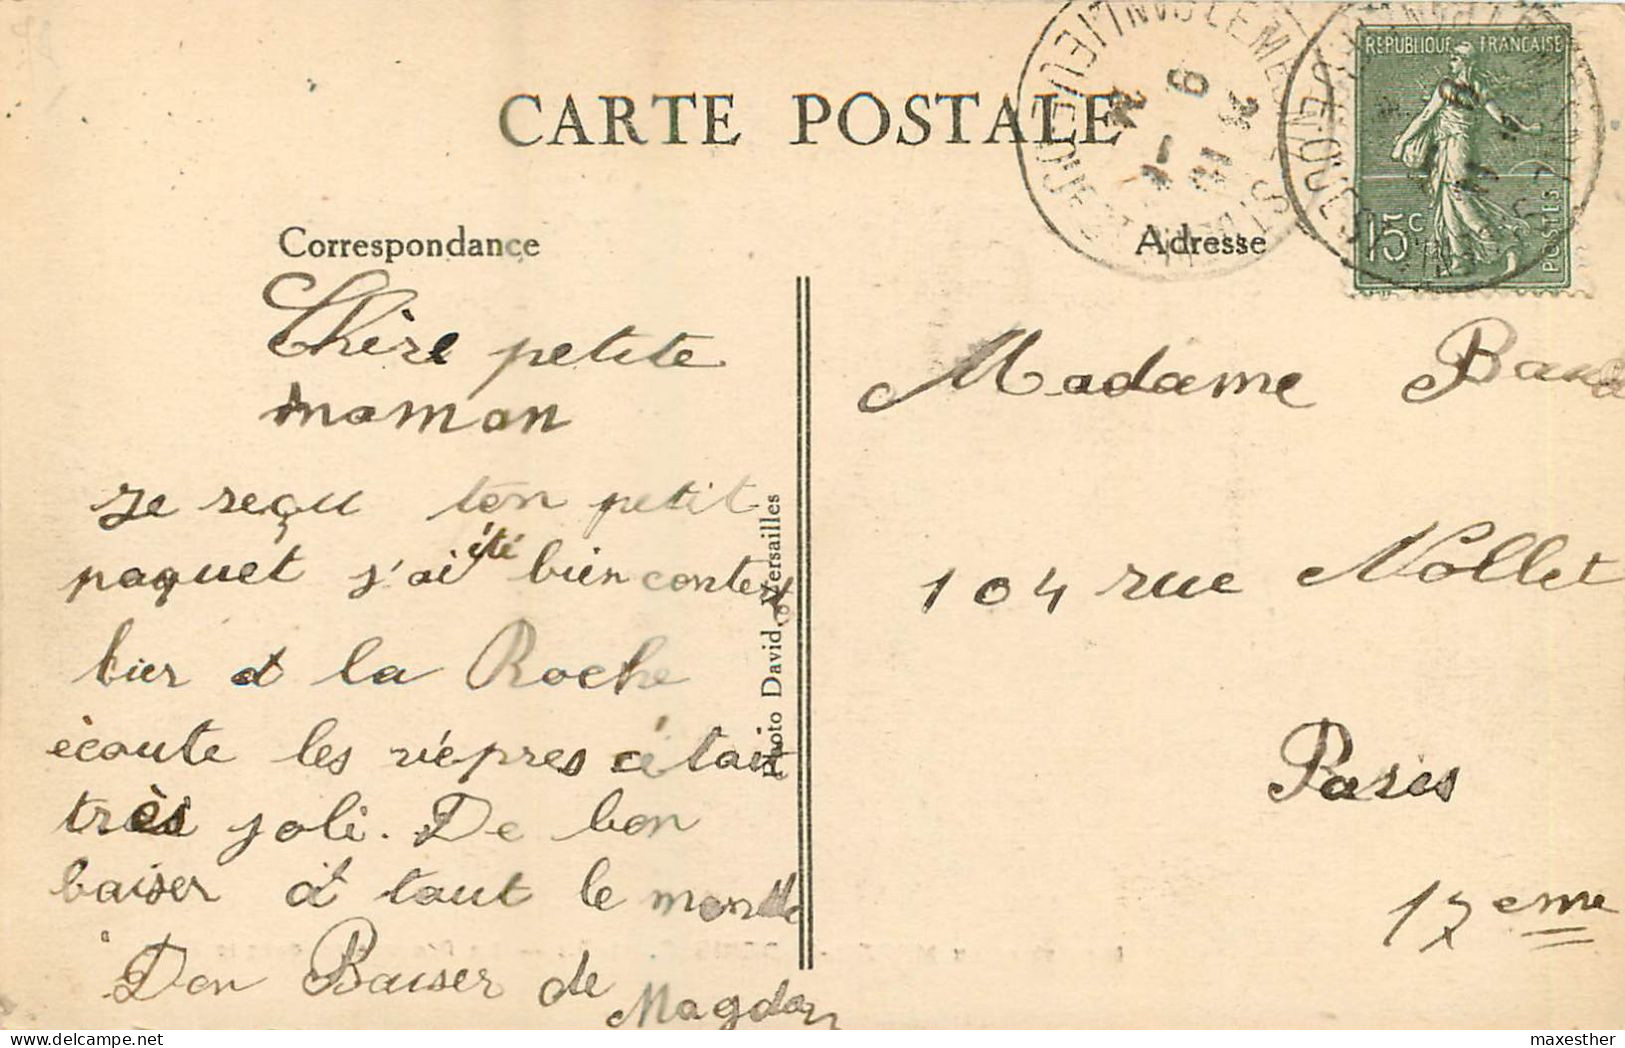 CARTE POSTALE
Correspondance
Adresse
REPUBLIQUE FRANÇAISE
15c
POSTES
Chère petite
maman
je reçu ton petit
paquet j'ai été bien content
hier à la Roche
écoute les vêpres c'était
très joli. De bon
baiser à tout le monde
Don Baiser de
Photo David, Versailles
Madame
104 rue Nollet
Paris
17eme
maxesther